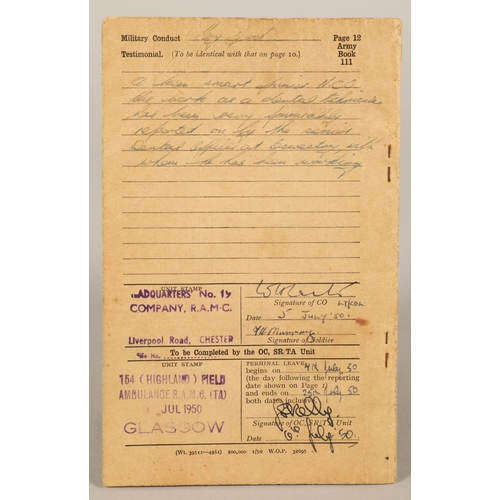 Military Conduct Very Good Page 12
Testimonial. (To be identical with that on page 10.) Army
Book
111
A keen smart junior N.C.O.
His work as a dental technician
has been very favourably
reported on by the senior
Dental Officer at Oswestry with
whom he has been working
UNIT STAMP
HEADQUARTERS No. 19
COMPANY, R.A.M.C.
Liverpool Road, CHESTER
Signature of CO LT/COL
Date 5 July '50.
Signature of Soldier
File No.
To be Completed by the OC, SR/TA Unit
UNIT STAMP
154 (HIGHLAND) FIELD
AMBULANCE R.A.M.C. (TA)
JUL 1950
GLASGOW
TERMINAL LEAVE
begins on 7th July 50
(the day following the reporting
date shown on Page
and ends on 25th July 50
both dates inclusive
Signature of OC, SR/TA Unit
Date 6th July '50.
(Wt. 39511—4961) 200,000 1/50 W.O.P. 32695